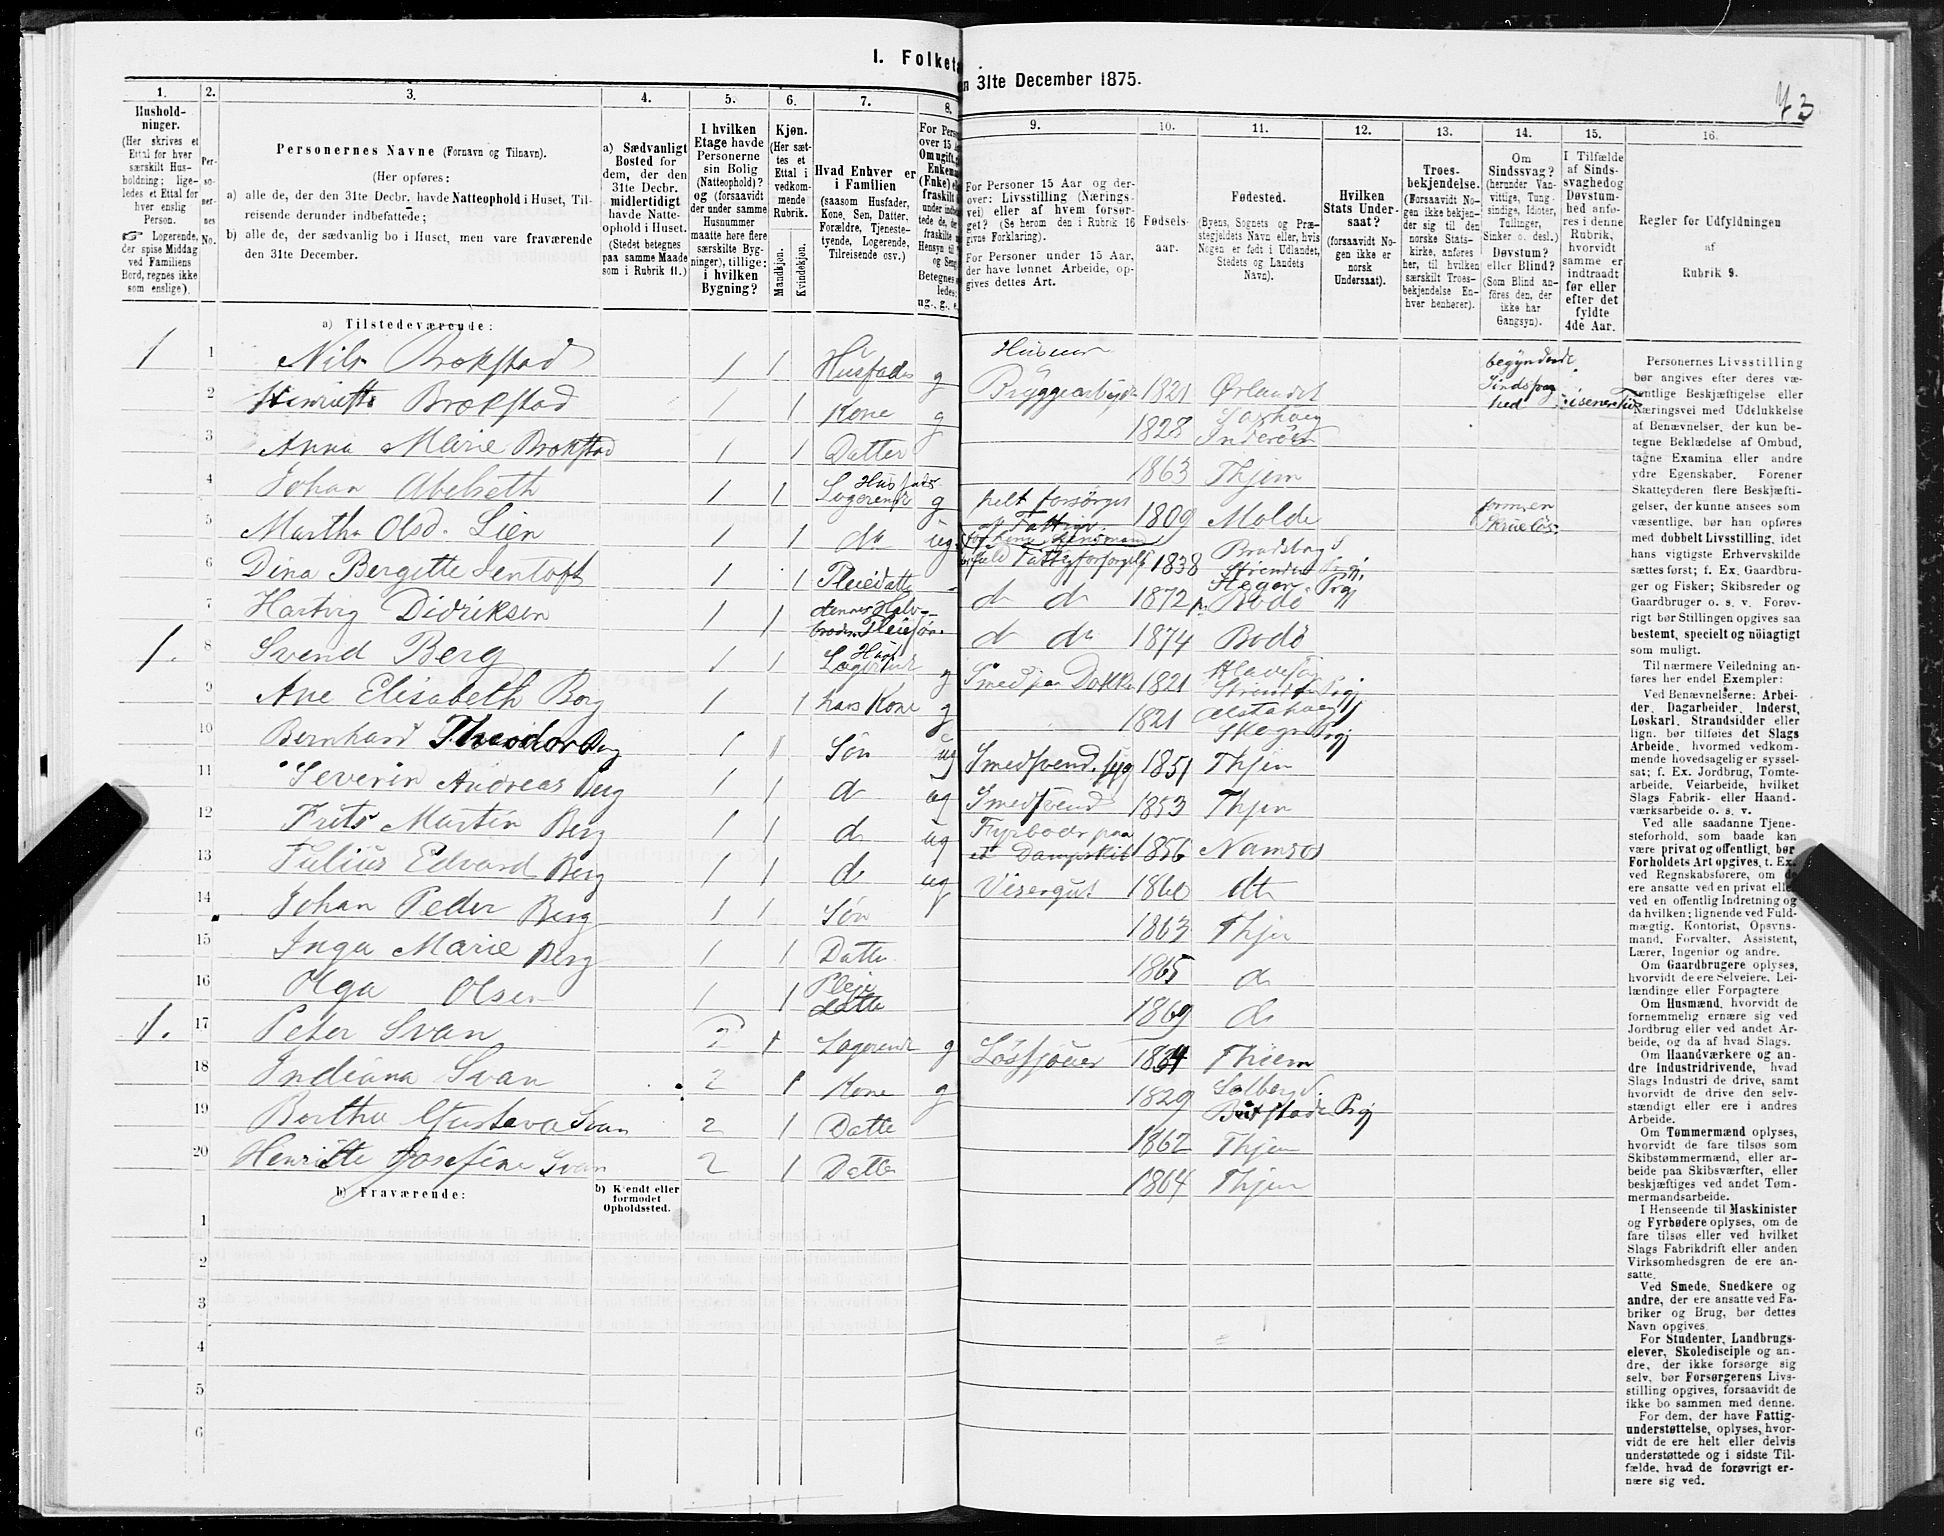 I. Folketæ
n 31te December 1875.
73
1.
Hushold-
ninger.
(Her skrives et
Ettal for hver
særskilt Hus-
holdning; lige-
ledes et Ettal for
hver enslig
Person.
☞ Logerende,
der spise Middag
ved Familiens
Bord, regnes ikke
som enslige).
2.
Per-
so-
ner-
nes
No.
3.
Personernes Navne (Fornavn og Tilnavn).
(Her opføres:
a) alle de, der den 31te Decbr. havde Natteophold i Huset, Til-
reisende derunder indbefattede;
b) alle de, der sædvanlig bo i Huset, men vare fraværende
den 31te December.
4.
a) Sædvanligt
Bosted for
dem, der den
31te Decbr.
midlertidigt
havde Natte-
ophold i Huset.
(Stedet betegnes
paa samme Maade
som i Rubrik 11.)
5.
I hvilken
Etage havde
Personerne
sin Bolig
(Natteophold)?
og (forsaavidt
der under samme
Husnummer
maatte høre flere
særskilte Byg-
ninger), tillige:
i hvilken
Bygning?
6.
Kjøn.
(Her sæt-
tes et
Ettal i
vedkom-
mende
Rubrik.
Mandkjøn.
Kvindekjøn.
7.
Hvad Enhver er
i Familien
(saasom Husfader,
Kone, Søn, Datter,
Forældre, Tjeneste-
tyende, Logerende,
Tilreisende osv.)
8.
For Perso
over 15 A
Om ugift, g
Enkema
(Enke) el
fraskilt
Hensyn til
og Seng
Betegnes
ledes:
ug., g., e.
9.
For Personer 15 Aar og der-
over: Livsstilling (Nærings-
vei) eller af hvem forsør-
get? (Se herom den i Rubrik 16
givne Forklaring).
For Personer under 15 Aar,
der have lønnet Arbeide, op-
gives dettes Art.
10.
Fødsels-
aar.
11.
Fødested.
(Byens, Sognets og Præ-
stegjeldets Navn eller, hvis
Nogen er født i Udlandet,
Stedets og Landets
Navn).
12.
Hvilken
Stats Under-
saat?
(forsaavidt No-
gen ikke er
norsk
Undersaat).
13.
Troes-
bekjendelse.
(Forsaavidt No-
gen ikke bekjen-
der sig til den
norske Stats-
kirke, anføres
her, til hvilken
særskilt Troes-
bekjendelse En-
hver henhører).
14.
Om
Sindssvag?
(herunder Van-
vittige, Tung-
sindige, Idioter,
Tullinger,
Sinker o. desl.)
Døvstum?
eller Blind?
(Som Blind an-
føres den, der
ikke har
Gangsyn).
15.
I Tilfælde
af Sinds-
svaghed og
Døvstum-
hed anfø-
res i denne
Rubrik,
hvorvidt
samme er
indtraadt
før eller
efter det
fyldte
4de Aar.
16.
Regler for Udfyldningen
af
Rubrik 9.
a) Tilstedeværende:
1 1 Nils Brekstad 1 1 Husfader g Huseier Bryggearbeider 1821 Ørlandet begyndende Sindssvaghed
2 Henriette Brekstad 1 1 Kone g 1828 Inderøen
3 Anna Marie Brekstad 1 1 Datter 1863 Thjem
4 Johan Abelseth 1 1 Husfader Logerende g helt forsørget af Fattigv. 1809 Molde
5 Martha Olsd. Lien 1 1 do ug 1838
6 Dina Bergitte Jentoft 1 1 Pleiedatter d do 1872 Bodø
7 Hartvig Didriksen 1 1 dennes Halvbroder Pleiesøn d do 1874 Bodø
1. 8 Svend Berg 1 1 Logerende g Smed paa Dokken 1821
9 Ane Elisabeth Berg 1 1 hans Kone g 1821
10 Bernhard Theodor Berg 1 1 Søn ug Smedsvend, syg 1851 Thjem
11 Severin Andreas Berg 1 1 d ug Smedsvend 1853 Thjem
12 Frits Martin Berg 1 1 d ug Fyrbøder paa et Dampskib 1856 Namsos
13 Julius Edvard Berg 1 1 d ug Visergut 1860 dto
14 Johan Peder Berg 1 1 Søn 1863 Thjem
15 Inga Marie Berg 1 1 Datter 1865 do
16 Olga Olsen 1 1 Pleie datter 1869 do
1. 17 Peter Svan 2 1 Logerende g Løssjouer 1834 Thjem
18 Indiana Svan 2 1 Kone g 1829 Beitstaden Prgj
19 Bertha Gustava Svan 2 1 Datter 1862 Thjem
20 Henriette Josefine Svan 2 1 Datter 1864 Thjem
b) Fraværende:
b) Kjendt eller
formodet
Opholdssted.
1
2
3
4
5
6
Personernes Livsstilling
bør angives efter deres væ-
sentlige Beskjæftigelse eller
Næringsvei med Udelukkelse
af Benævnelser, der kun be-
tegne Beklædelse af Ombud,
tagne Examina eller andre
ydre Egenskaber. Forener
Skatteyderen flere Beskjæfti-
gelser, der kunne ansees som
væsentlige, bør han opføres
med dobbelt Livsstilling, idet
hans vigtigste Erhvervskilde
sættes først; f. Ex. Gaardbru-
ger og Fisker; Skibsreder og
Gaardbruger o. s. v. Forøv-
rigt bør Stillingen opgives saa
bestemt, specielt og nøiagtigt
som muligt.
Til nærmere Veiledning an-
føres her endel Exempler:
Ved Benævnelserne: Arbei-
der, Dagarbeider, Inderst,
Løskarl, Strandsidder eller
lign. bør tilføies det Slags
Arbeide, hvormed vedkom-
mende hovedsagelig er syssel-
sat; f. Ex. Jordbrug, Tomte-
arbeide, Veiarbeide, hvilket
Slags Fabrik- eller Haand-
værksarbeide o. s. v.
Ved alle saadanne Tjene-
steforhold, som baade kan
være privat og offentligt, bør
Forholdets Art opgives, t. Ex.
ved Regnskabsførere, om de
ere ansatte ved en privat eller
ved en offentlig Indretning og
da hvilken; lignende ved Fuld-
mægtig, Kontorist, Opsyns-
mand, Forvalter, Assistent,
Lærer, Ingeniør og andre.
Om Gaardbrugere oplyses,
hvorvidt de ere Selveiere, Lei-
lændinge eller Forpagtere
Om Husmænd, hvorvidt de
fornemmelig ernære sig ved
Jordbrug eller ved andet Ar-
beide, og da af hvad Slags.
Om Haandværkere og an-
dre Industridrivende, hvad
Slags Industri de drive, samt
hvorvidt de drive den selv-
stændigt eller ere i andres
Arbeide.
Om Tømmermænd oplyses,
hvorvidt de fare tilsøs som
Skibstømmermænd, eller ar-
beide paa Skibsværfter, eller
beskjæftiges ved andet Tøm-
mermandsarbeide.
I Henseende til Maskinister
og Fyrbødere oplyses, om de
fare tilsøs eller ved hvilket
Slags Fabrikdrift eller anden
Virksomhedsgren de ere an-
satte.
Ved Smede, Snedkere og
andre, der ere ansatte ved Fa-
briker og Brug, bør dettes
Navn opgives.
For Studenter, Landbrugs-
elever, Skoledisciple og an-
dre, der ikke forsørge sig
selv, bør Forsørgerens Livs-
stilling opgives, forsaavidt de
ikke bo sammen med denne.
For dem, der have Fattig-
understøttelse, oplyses, hvor-
vidt de ere helt eller delvis
understøttede og i sidste Til-
fælde, hvad de forøvrigt er-
nære sig ved.